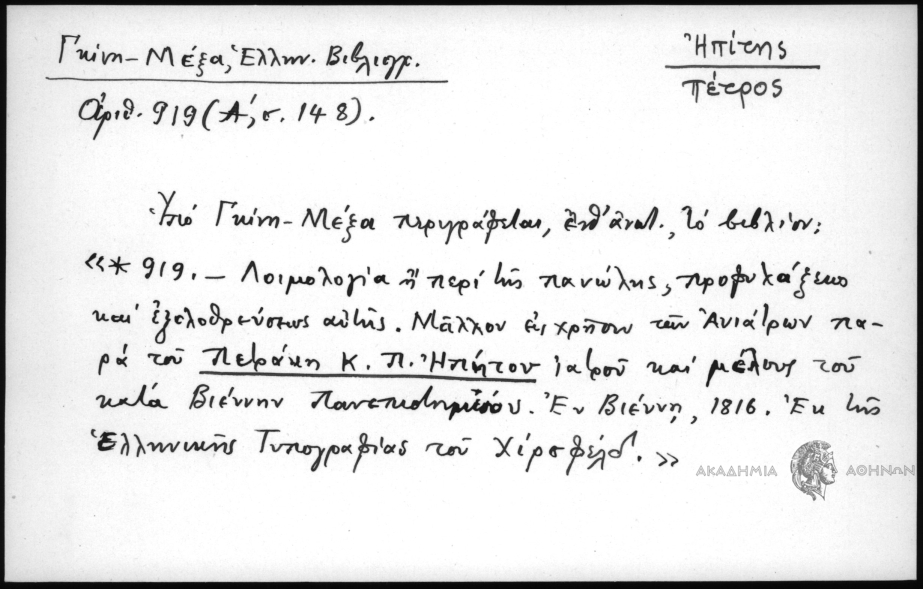 Γκίνη-Μέξα, Ἑλλην. Βιβλιογρ.
Ἠπίτης
πέτρος
ἀριθ. 919 (Α΄, σ. 148).
Ὑπό Γκίνη-Μέξα περιγράφεται, ἐνθ' ἀνωτ., τό βιβλίον:
«* 919. — Λοιμολογία ἤ περί τῆς πανώλης, προφυλάξεως
καί ἐξολοθρεύσεως αὐτῆς. Μᾶλλον εἰς χρῆσιν τῶν Ἀνιάτρων πα-
ρά τοῦ Πετράκη Κ. Π. Ἠπήτου ἰατροῦ καί μέλους τοῦ
κατά Βιέννην Πανεπιστημίου. Ἐν Βιέννῃ, 1816. Ἐκ τῆς
Ἑλληνικῆς Τυπογραφίας τοῦ Χίρσφελδ. »
ΑΚΑΔΗΜΙΑ ΑΘΗΝΩΝ